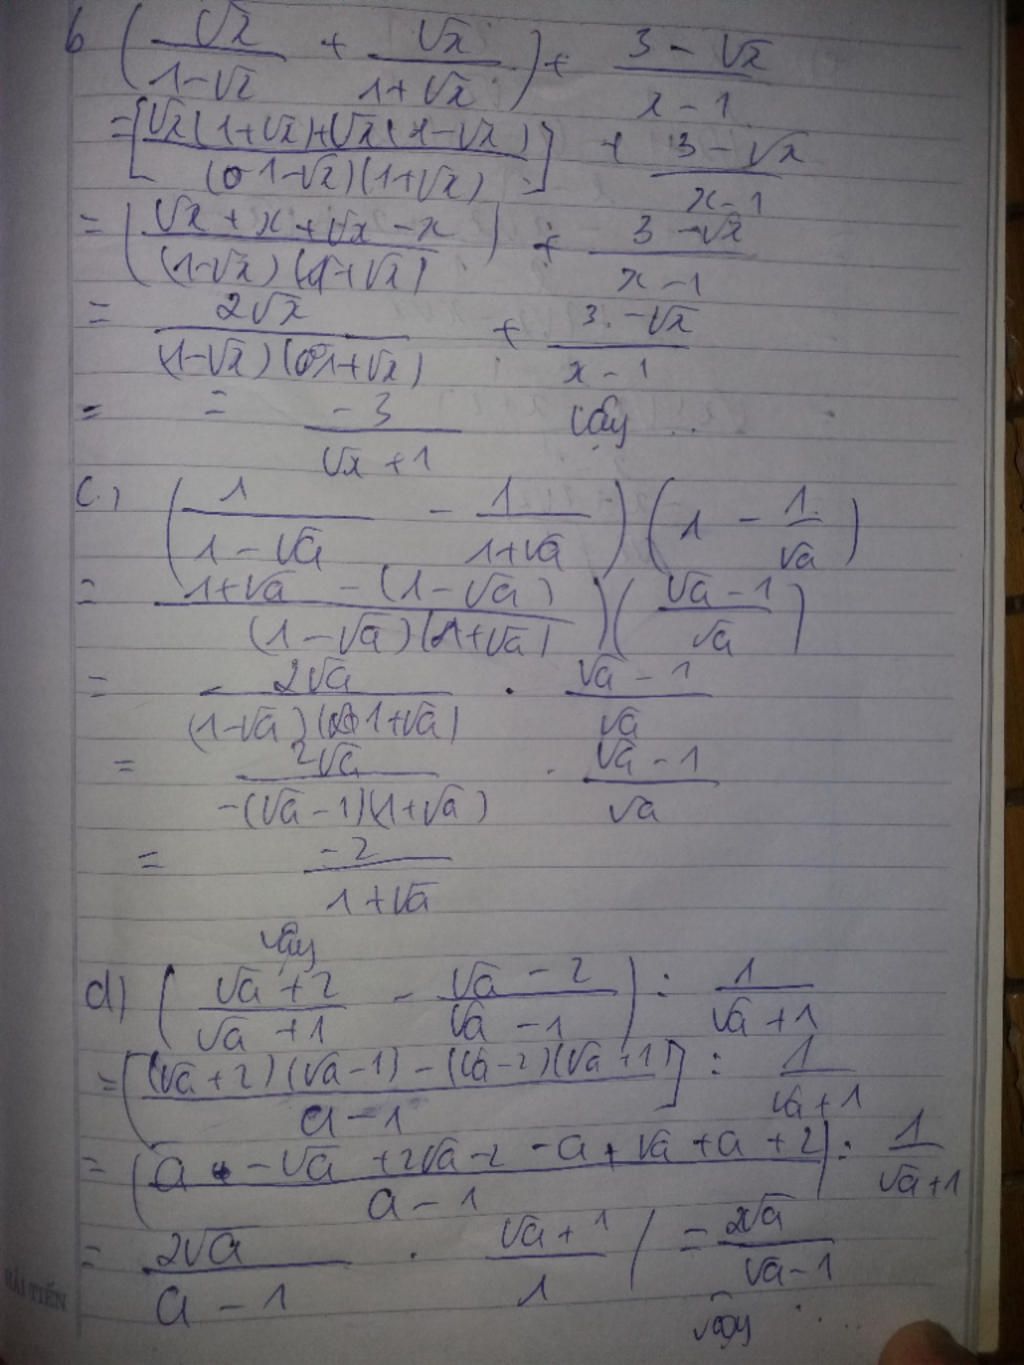 b (√x / (1-√x) + √x / (1+√x)) + (3-√x) / (x-1)
= [(√x(1+√x)+√x(1-√x)) / ((1-√x)(1+√x))] + (3-√x) / (x-1)
= ((√x+x+√x-x) / ((1-√x)(1+√x))) + (3-√x) / (x-1)
= 2√x / ((1-√x)(1+√x)) + (3-√x) / (x-1)
= = -3 / (√x+1) Vậy ..
c) (1 / (1-√a) - 1 / (1+√a)) (1 - 1/√a)
= (1+√a - (1-√a)) / ((1-√a)(1+√a)) ) ((√a-1) / √a)
= 2√a / ((1-√a)(1+√a)) . (√a-1) / √a
= 2√a / (-(√a-1)(1+√a)) . (√a-1) / √a
= -2 / (1+√a)
Vậy
d) ((√a+2) / (√a+1) - (√a-2) / (√a-1)) : 1 / (√a+1)
= [((√a+2)(√a-1)-(√a-2)(√a+1)) / (a-1)] : 1 / (√a+1)
= ((a-√a+2√a-2-a+√a+a+2) / (a-1)) : 1 / (√a+1)
= 2√a / (a-1) . (√a+1) / 1 / = 2√a / (√a-1)
Vậy ...
HẢI TIẾN